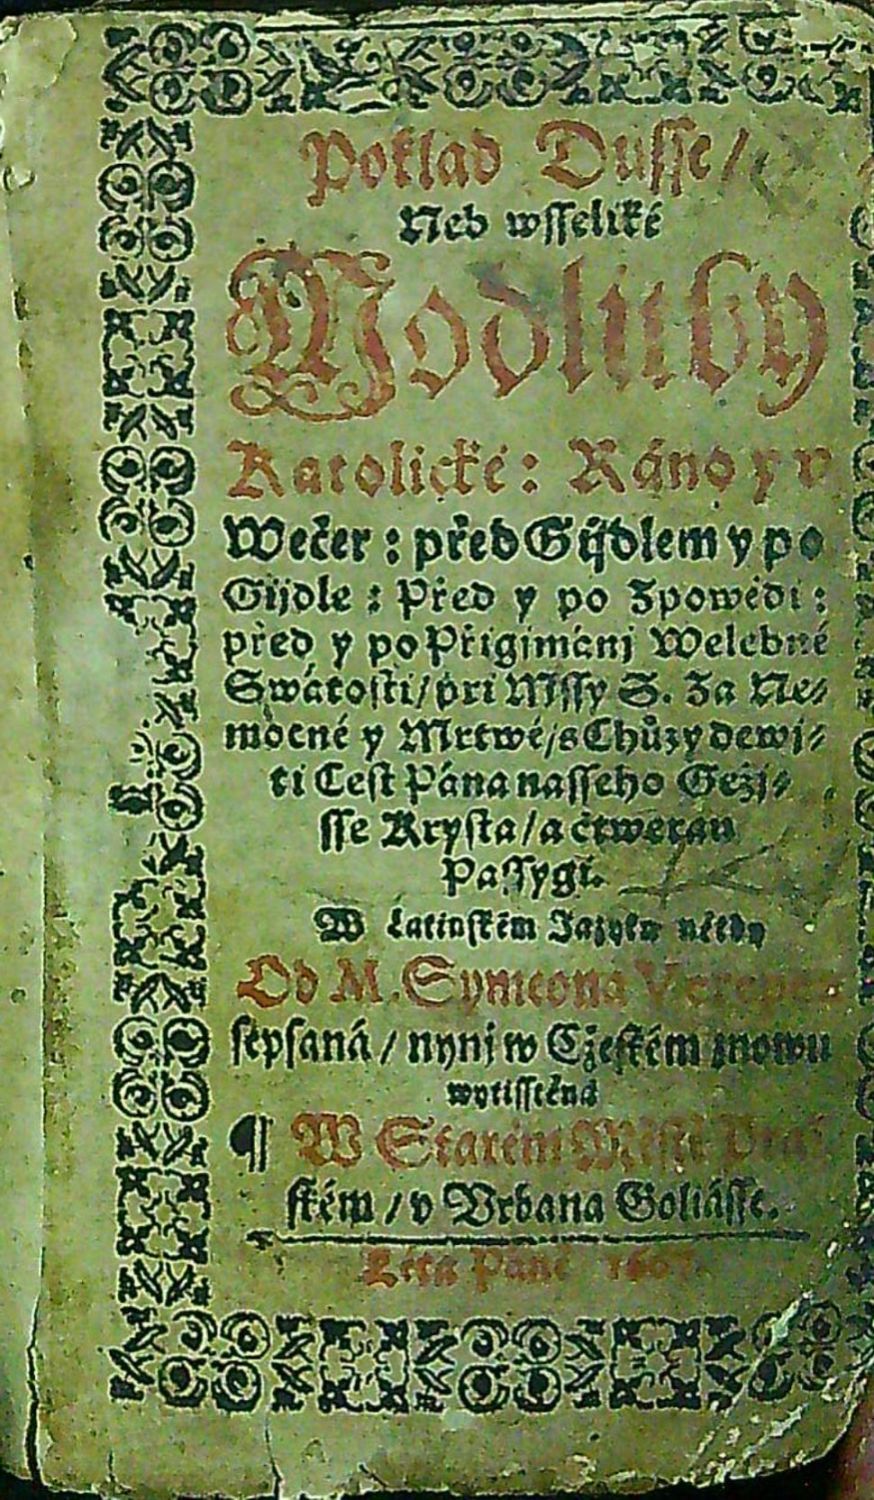 Poklad Dusse /
Neb wsseliké
Modlitby
Katolické : Ráno y v
Wečer : před Gijdlem y po
Gijdle : Před y po Zpowědi :
před y po Přigjmánj Welebné
Swátosti / při Mssy S. Za Ne⸗
mocné y Mrtwé / s Chůzy dewj⸗
ti Cest Pána nasseho Gežj⸗
sse Krysta / a čtweran
Passygi.
W Latinském Jazyku někdy
Od M. Symeona
sepsaná / nynj w Cžeském znowu
wytisstěná
¶ W Starém Městě Praž
ském / v Vrbana Goliásse.
Léta Páně